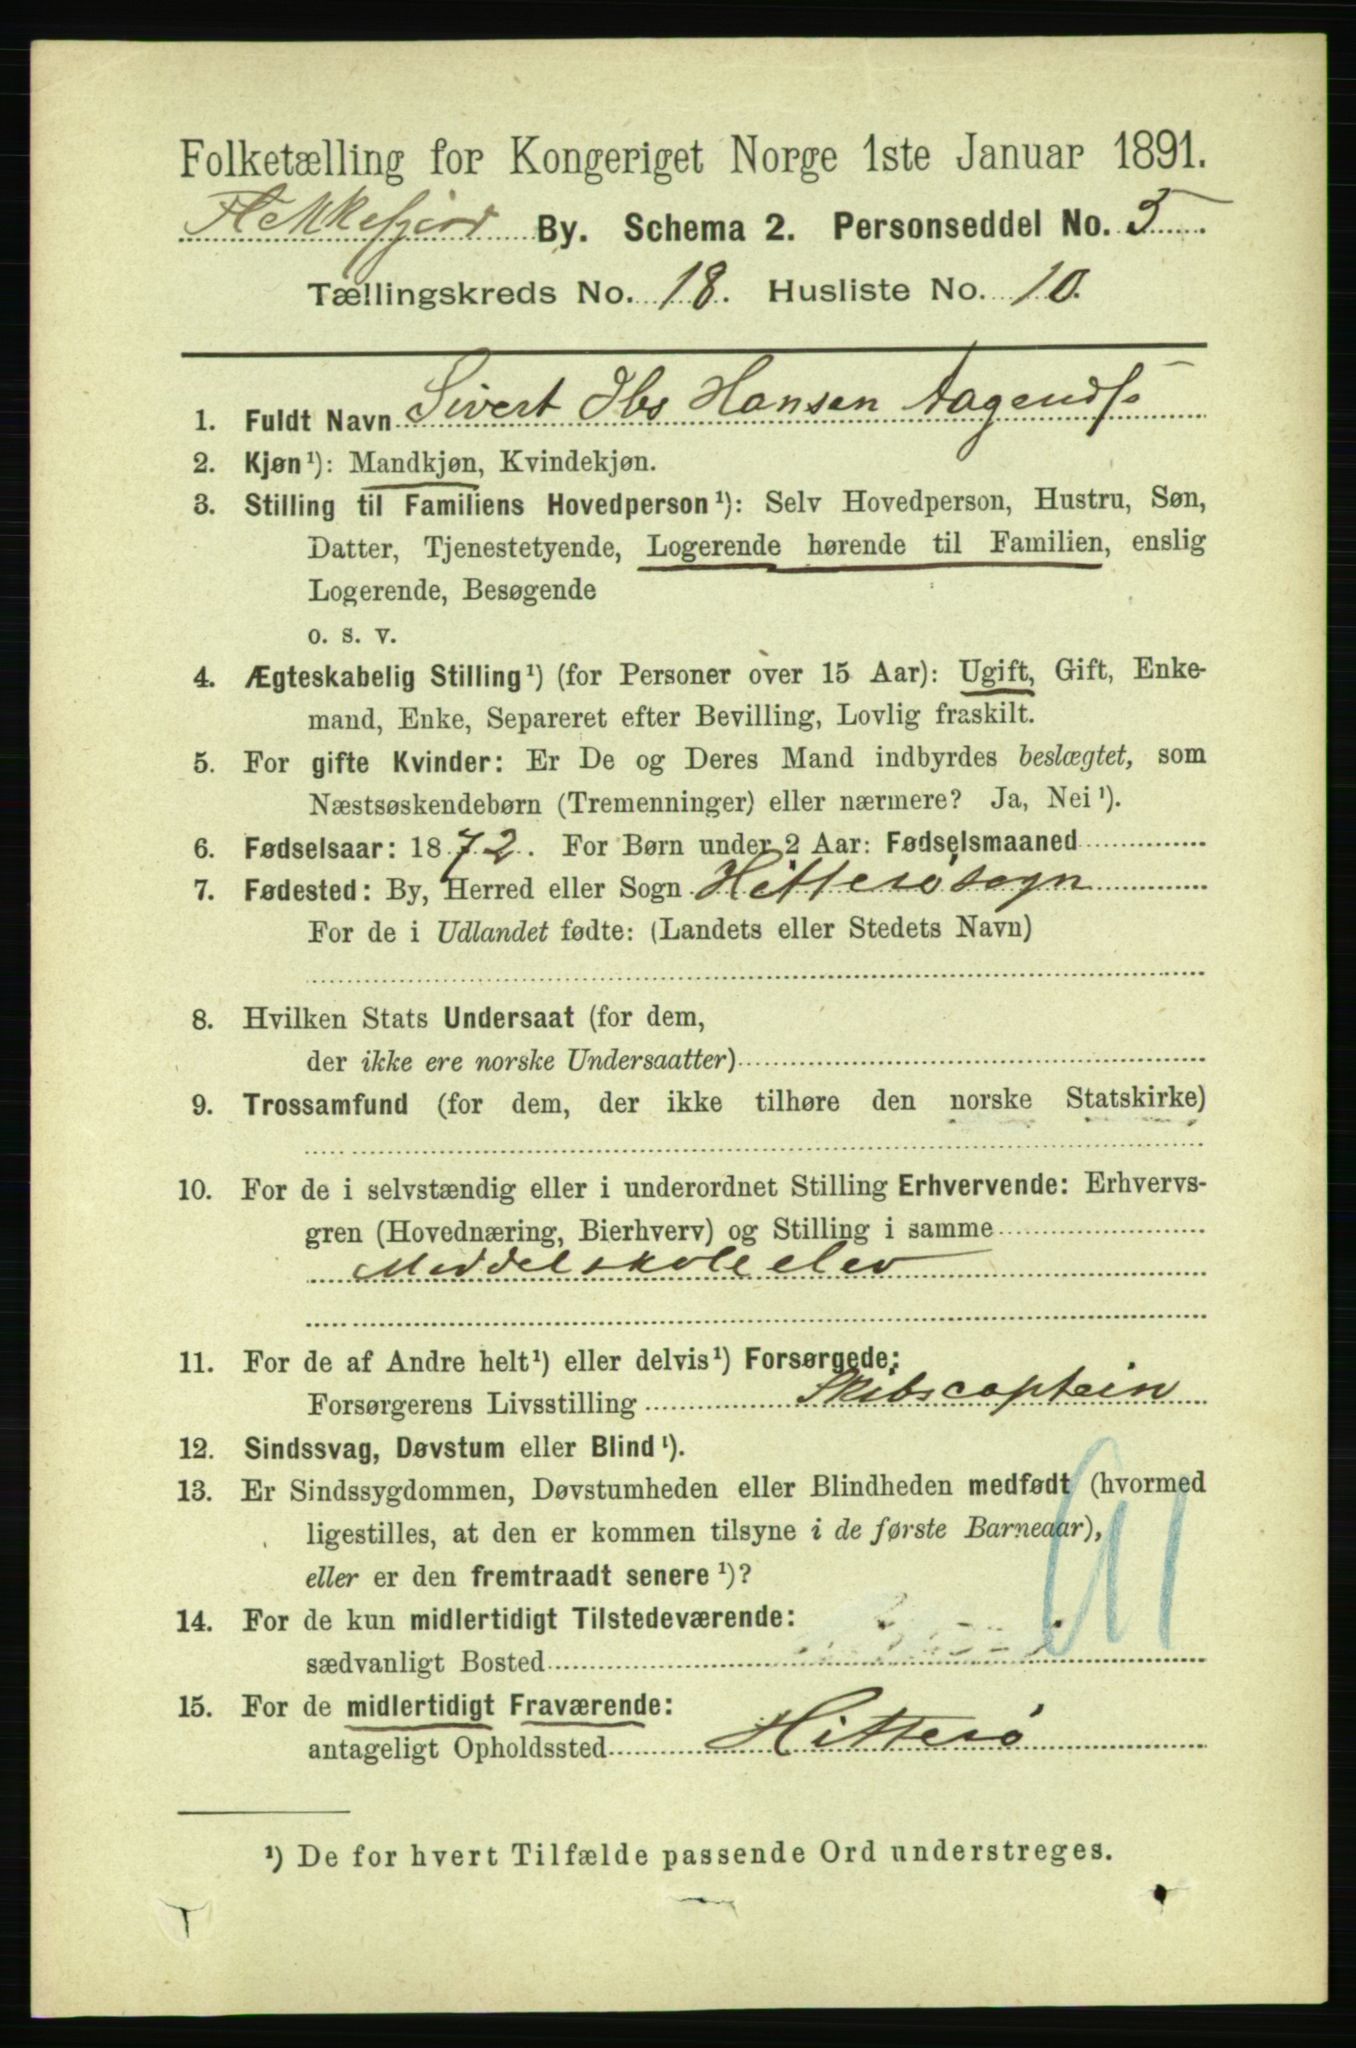 Folketælling for Kongeriget Norge 1ste Januar 1891.
Flekkefjord By. Schema 2. Personseddel No. 5
Tællingskreds No. 18. Husliste No. 10.
1. Fuldt Navn Sivert Ibs Hansen
2. Kjøn¹): Mandkjøn, Kvindekjøn.
3. Stilling til Familiens Hovedperson¹): Selv Hovedperson, Hustru, Søn,
Datter, Tjenestetyende, Logerende hørende til Familien, enslig
Logerende, Besøgende
o. s. v.
4. Ægteskabelig Stilling¹) (for Personer over 15 Aar): Ugift, Gift, Enke-
mand, Enke, Separeret efter Bevilling, Lovlig fraskilt.
5. For gifte Kvinder: Er De og Deres Mand indbyrdes beslægtet, som
Næstsøskendebørn (Tremenninger) eller nærmere? Ja, Nei¹).
6. Fødselsaar: 1872. For Børn under 2 Aar: Fødselsmaaned
7. Fødested: By, Herred eller Sogn Hitterö sogn
For de i Udlandet fødte: (Landets eller Stedets Navn)
8. Hvilken Stats Undersaat (for dem,
der ikke ere norske Undersaatter)
9. Trossamfund (for dem, der ikke tilhøre den norske Statskirke)
10. For de i selvstændig eller i underordnet Stilling Erhvervende: Erhvervs-
gren (Hovednæring, Bierhverv) og Stilling i samme
Middelskoleelev
11. For de af Andre helt¹) eller delvis¹) Forsørgede:
Forsørgerens Livsstilling Skibscaptein
12. Sindssvag, Døvstum eller Blind¹).
13. Er Sindssygdommen, Døvstumheden eller Blindheden medfødt (hvormed
ligestilles, at den er kommen tilsyne i de første Barneaar),
eller er den fremtraadt senere¹)?
14. For de kun midlertidigt Tilstedeværende:
sædvanligt Bosted
15. For de midlertidigt Fraværende:
antageligt Opholdssted Hitterö
¹) De for hvert Tilfælde passende Ord understreges.